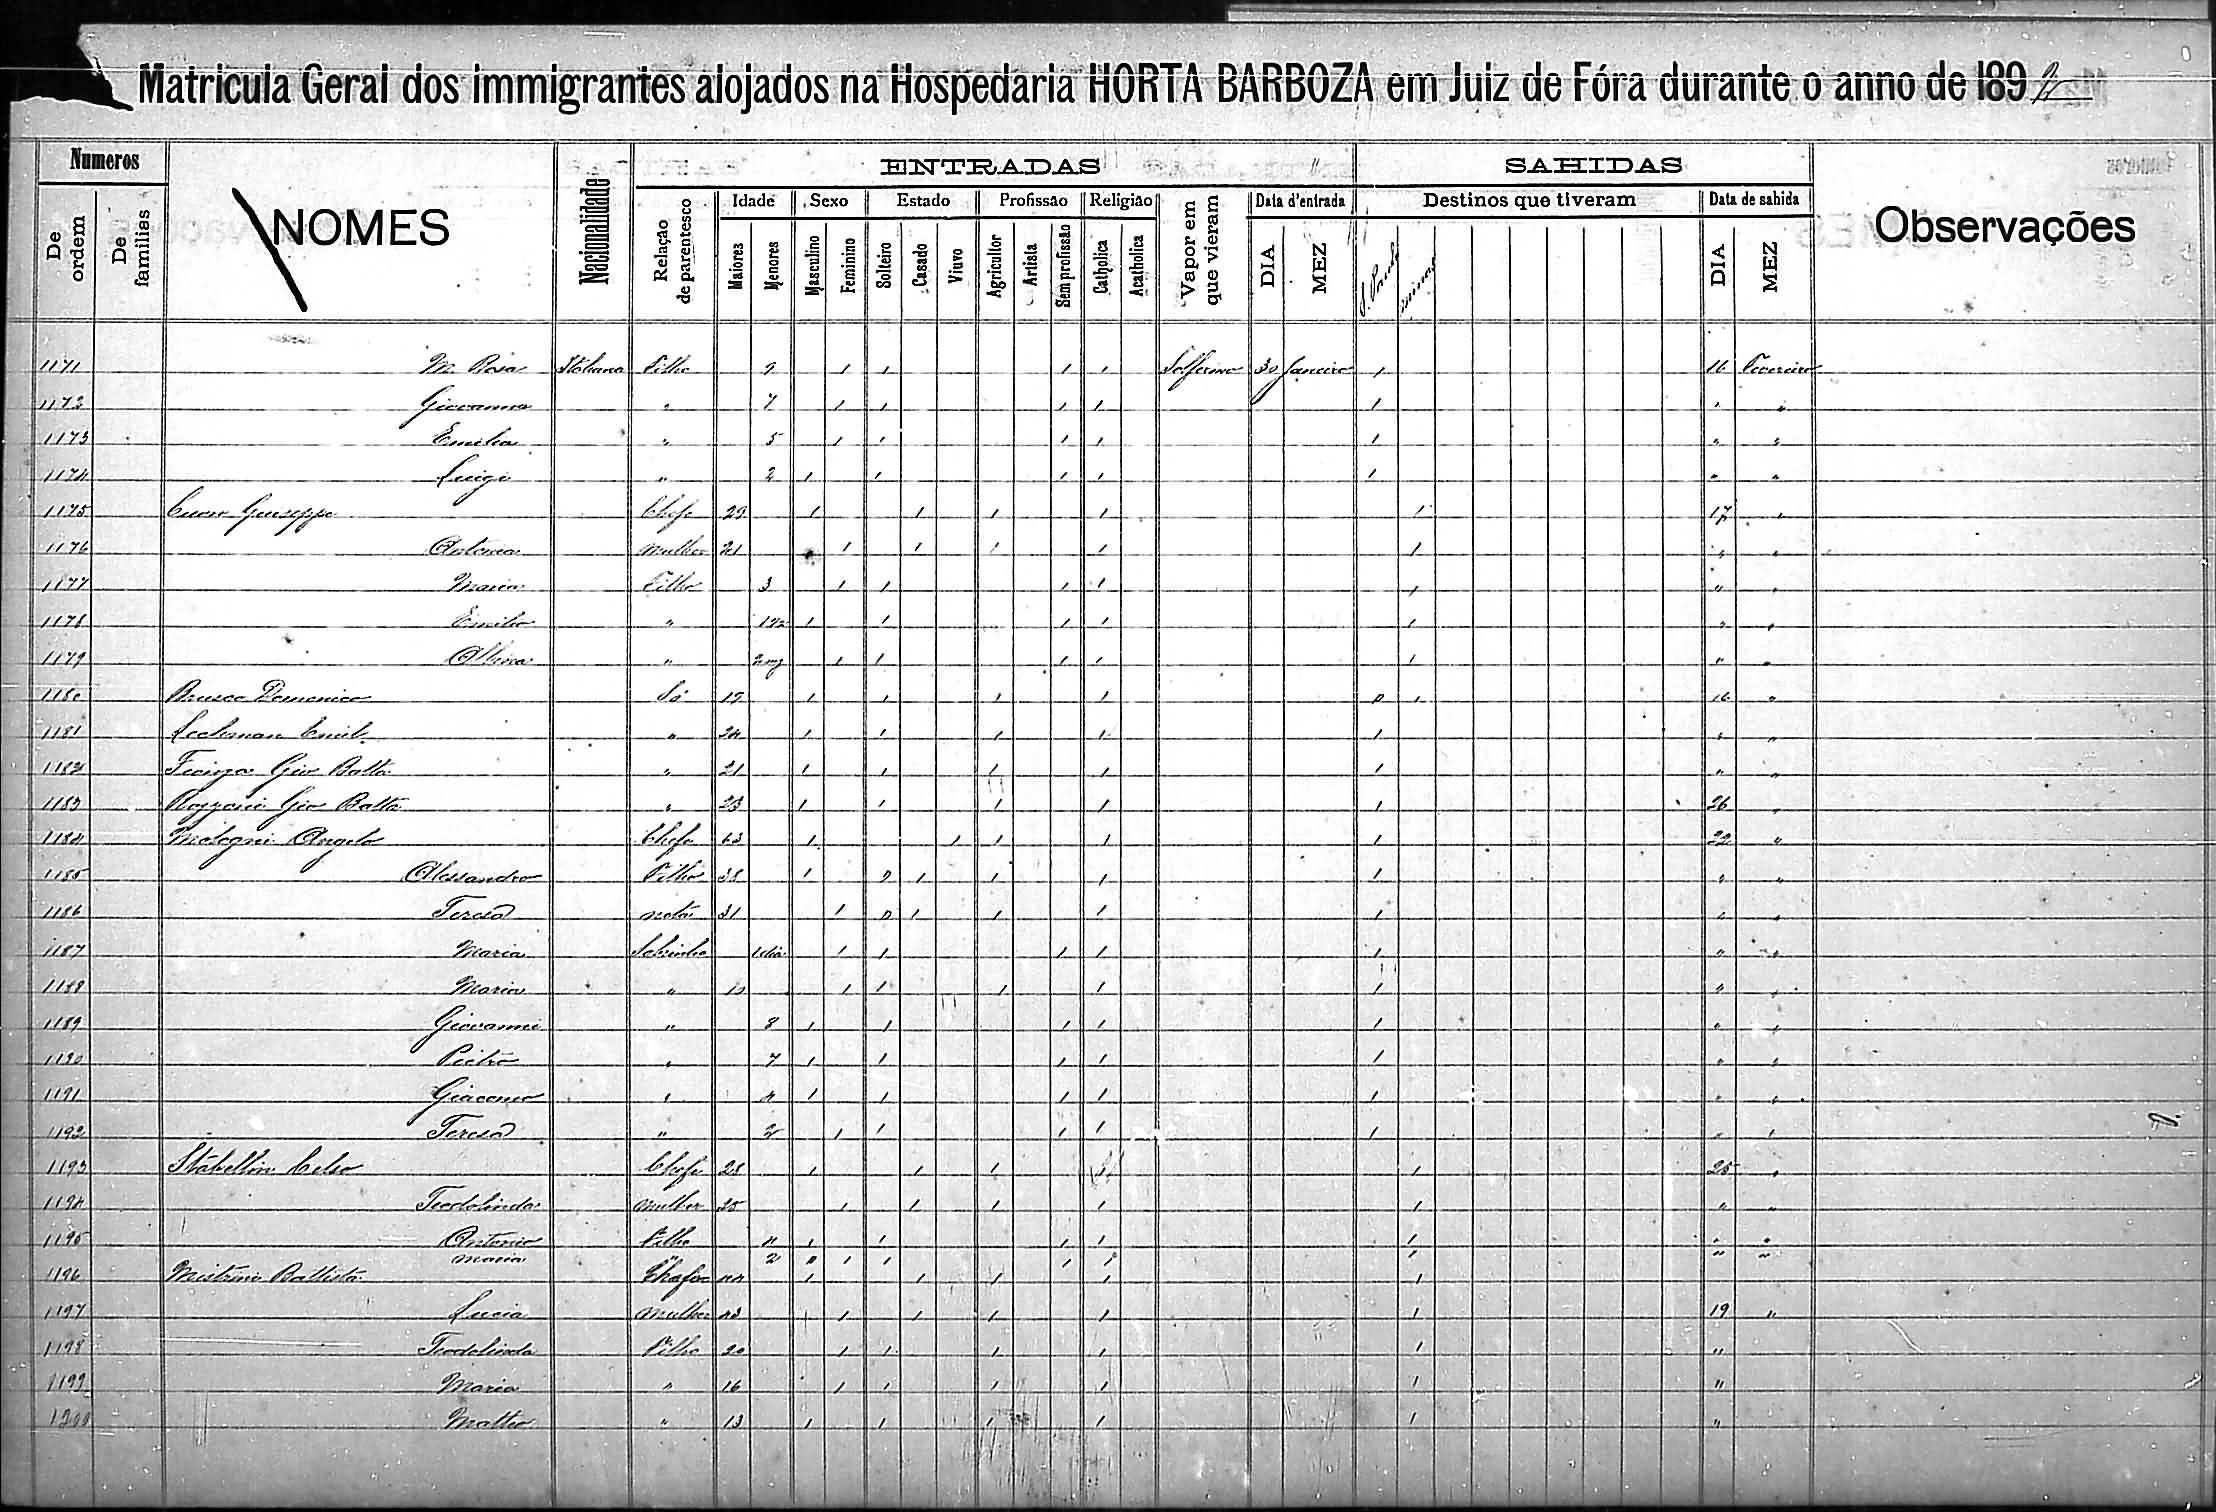 Matricula Geral dos immigrantes alojados na Hospedaria HORTA BARBOZA em Juiz de Fóra durante o anno de 1892
Numeros ENTRADAS SAHIDAS
De ordem De familias NOMES Nacionalidade Relação de parentesco Idade Sexo Estado Profissão Religião Vapor em que vieram Data d'entrada Destinos que tiveram Data de sahida Observações
Maiores Menores Masculino Feminino Solteiro Casado Viuvo Agricultor Artista Sem profissão Catholica Acatholica DIA MEZ S. Paulo minas DIA MEZ
1171 M. Rosa Italiana Filho 9 1 1 1 1 Solferino 30 Janeiro 1 16 Fevereiro
1172 Giovanna " 7 1 1 1 1 1 " "
1173 Emilia " 5 1 1 1 1 1 " "
1174 Luigi " 2 1 1 1 1 1 " "
1175 Giuseppe Chefe 29 1 1 1 1 1 17 "
1176 Antonia mulher 21 1 1 1 1 1 " "
1177 Maria Filho 3 1 1 1 1 1 " "
1178 Emilio " 1 1 1 1 1 " "
1179 " 1 1 1 1 1 " "
1180 Brusco Domenico Só 19 1 1 1 1 1 16 "
1181 Emil " 24 1 1 1 1 1 " "
1182 Gio Batta " 21 1 1 1 1 1 " "
1183 Gio Batta " 23 1 1 1 1 1 26 "
1184 Angelo Chefe 63 1 1 1 1 1 22 "
1185 Alessandro Filho 38 1 1 1 1 1 " "
1186 Teresa 31 1 1 1 1 1 " "
1187 Maria Sobrinha 1 dia 1 1 1 1 1 " "
1188 Maria " 1 1 1 1 1 " "
1189 Giovanni " 8 1 1 1 1 1 " "
1190 Pietro " 7 1 1 1 1 1 " "
1191 Giacomo " 4 1 1 1 1 1 " "
1192 Teresa " 2 1 1 1 1 1 " "
1193 Stabellin Celso Chefe 28 1 1 1 1 1 25 "
1194 Teodolinda mulher 25 1 1 1 1 1 " "
1195 Antonio Filho 4 1 1 1 1 1 " "
maria " 2 1 1 1 1 1 " "
1196 Mistrini Battista Chefe 44 1 1 1 1 1
1197 Lucia mulher 43 1 1 1 1 1 19 "
1198 Teodolinda Filho 20 1 1 1 1 1 "
1199 Maria " 16 1 1 1 1 1 "
1200 Matteo " 13 1 1 1 1 1 "